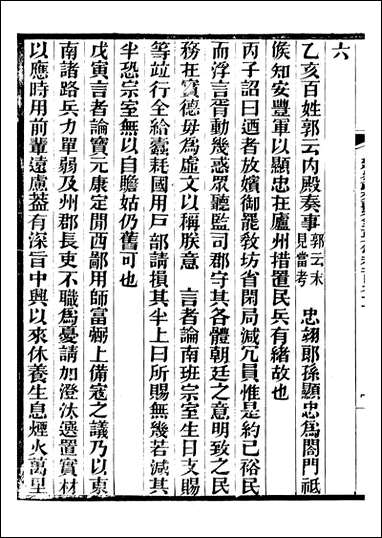 六
乙亥百姓郭云内殿奏事郭云未見當考　忠翊郎孫顯忠爲閤門祗
候知安豐軍以顯忠在廬州措置民兵有緒故也
丙子詔曰迺者放嬪御罷敎坊省閑局減冗員惟是約已裕民
而浮言胥動幾惑眾聽監司郡守其各體朝廷之意明致之民
務在實德毋爲虛文以稱朕意　言者論南班宗室生日支賜
等竝行全給蠹耗國用戸部請損其半上曰所賜無幾若減其
半恐宗室無以自贍姑仍舊可也
戊寅言者論寶元康定閒西鄙用師富弼上備寇之議乃以東
南諸路兵力單弱及州郡長吏不職爲憂請加澄汰選置實材
以應時用前輩遠慮葢有深旨中興以來休養生息煙火萬里